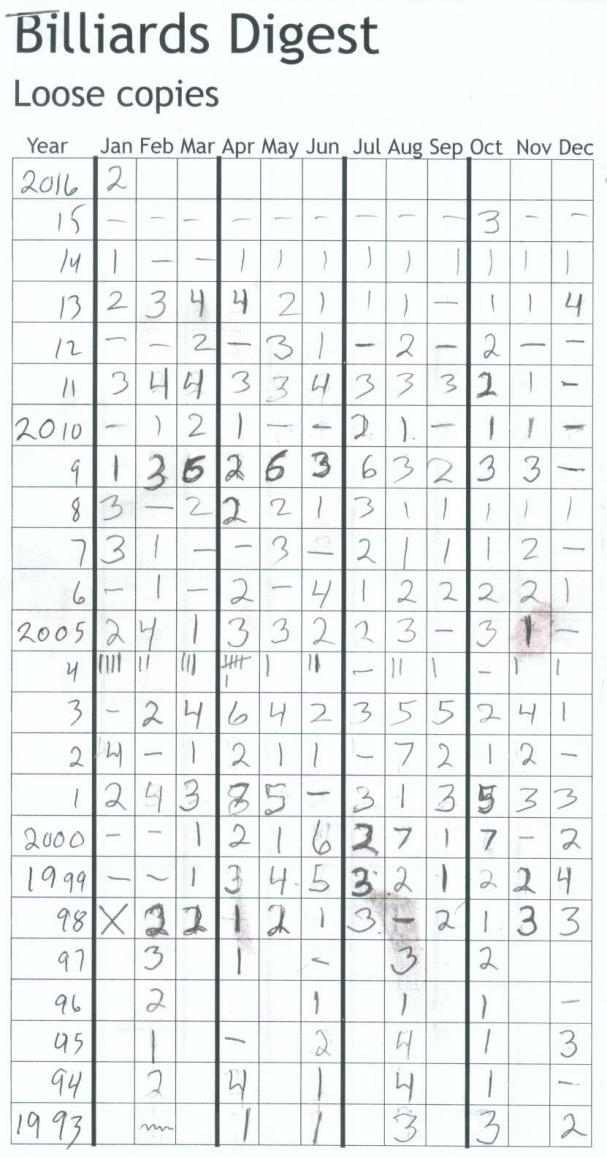 Billiards Digest
Loose copies
Year Jan Feb Mar Apr May Jun Jul Aug Sep Oct Nov Dec
2016 2
15 – – – – – – – – – 3 – –
14 1 – – 1 1 1 1 1 1 1 1 1
13 2 3 4 4 2 1 1 1 – 1 1 4
12 – – 2 – 3 1 – 2 – 2 – –
11 3 4 4 3 3 4 3 3 3 2 1 –
2010 – 1 2 1 – – 2 1 – 1 1 –
9 1 3 6 2 6 3 6 3 2 3 3 –
8 3 – 2 2 2 1 3 1 1 1 1 1
7 3 1 – – 3 – 2 1 1 1 2 –
6 – 1 – 2 – 4 1 2 2 2 2 1
2005 2 4 1 3 3 2 2 3 – 3 1 –
4 |||| || ||| 卌| | || – || | – | |
3 – 2 4 6 4 2 3 5 5 2 4 1
2 4 – 1 2 1 1 – 7 2 1 2 –
1 2 4 3 8 5 – 3 1 3 5 3 3
2000 – – 1 2 1 6 2 7 1 7 – 2
1999 – ~ 1 3 4 5 3 2 1 2 2 4
98 X 2 2 1 2 1 3 – 2 1 3 3
97 3 1 – 3 2
96 2 1 1 1 –
95 1 – 2 4 1 3
94 2 4 1 4 1 –
1993 1 1 3 3 2